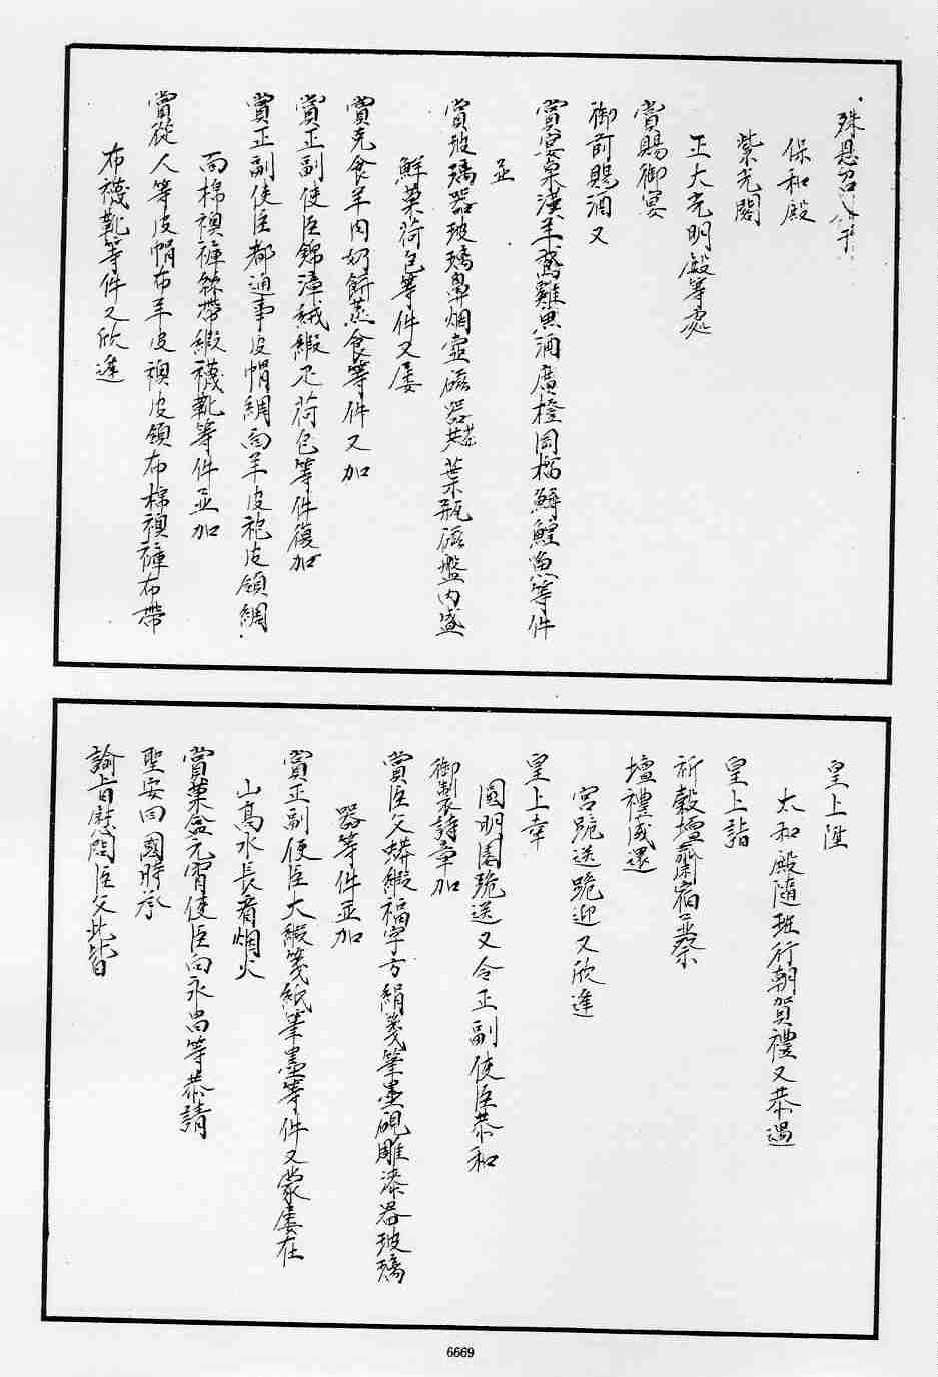 殊恩召入
保和殿
紫光閣
正大光明殿等處
賞賜御宴
御前賜酒又
賞宴桌漢羊鵞雞魚酒廣橙岡榴鱘鰉魚等件
並
賞玻璃器玻璃鼻烟壺磁器茶葉瓶磁盤內盛
鮮菓荷包等件又屢
賞克食羊肉奶餅蒸食等件又加
賞正副使臣錦漳絨緞疋荷包等件復加
賞正副使臣都通事皮帽綢面羊皮袍皮領綢
面棉襖褲絲帶緞襪靴等件並加
賞從人等皮帽布羊皮襖皮領布棉襖褲布帶
布襪靴等件又欣逢
皇上陞
太和殿隨班行朝賀禮又恭遇
皇上詣
祈穀壇齋宿並祭
壇禮成還
宮跪送跪迎又欣逢
皇上幸
圓明園跪送又令正副使臣恭和
御製詩章加
賞臣父蟒緞福字方絹箋筆墨硯雕漆器玻璃
器等件並加
賞正副使臣大緞箋紙筆墨等件又蒙屢在
山高水長看烟火
賞菓盒元宵使臣向永昌等恭請
聖安回國時承
諭旨慰問臣父此皆
6669